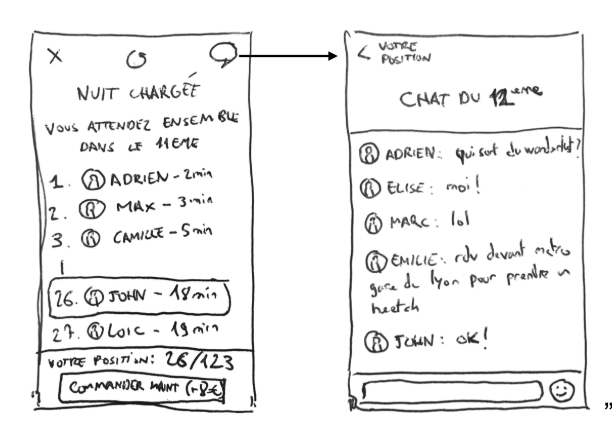 X
NUIT CHARGÉE
VOUS ATTENDEZ ENSEMBLE
DANS LE 11EME
1. ADRIEN - 2min
2. MAX - 3min
3. CAMILLE - 5min
26. JOHN - 18min
27. LOIC - 19min
VOTRE POSITION: 26/123
COMMANDER MAINT (+8€)
< VOTRE
POSITION
CHAT DU 12eme
ADRIEN: qui sort du wanderlust?
ELISE: moi!
MARC: lol
EMILIE: rdv devant metro
gare de lyon pour prendre un
heetch
JOHN: OK!
"